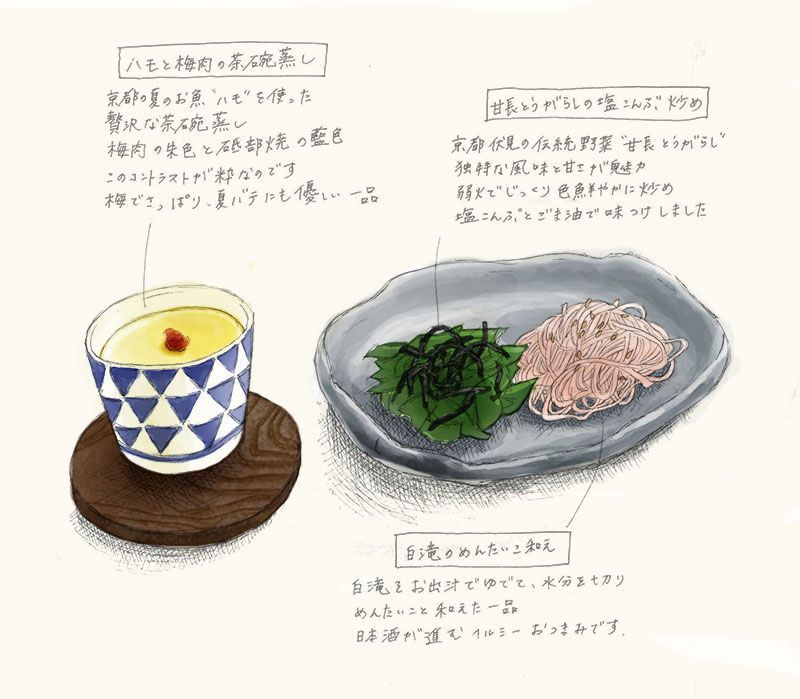 ハモと梅肉の茶碗蒸し
京都の夏のお魚"ハモ"を使った
贅沢な茶碗蒸し
梅肉の朱色と砥部焼の藍色
このコントラストが粋なのです
梅でさっぱり、夏バテにも優しい一品
甘長とうがらしの塩こんぶ炒め
京都伏見の伝統野菜"甘長とうがらし"
独特な風味と甘さが魅力
弱火でじっくり色鮮やかに炒め
塩こんぶとごま油で味つけしました
白滝のめんたいこ和え
白滝をお出汁でゆでて、水分を切り
めんたいこと和えた一品
日本酒が進むヘルシーおつまみです.